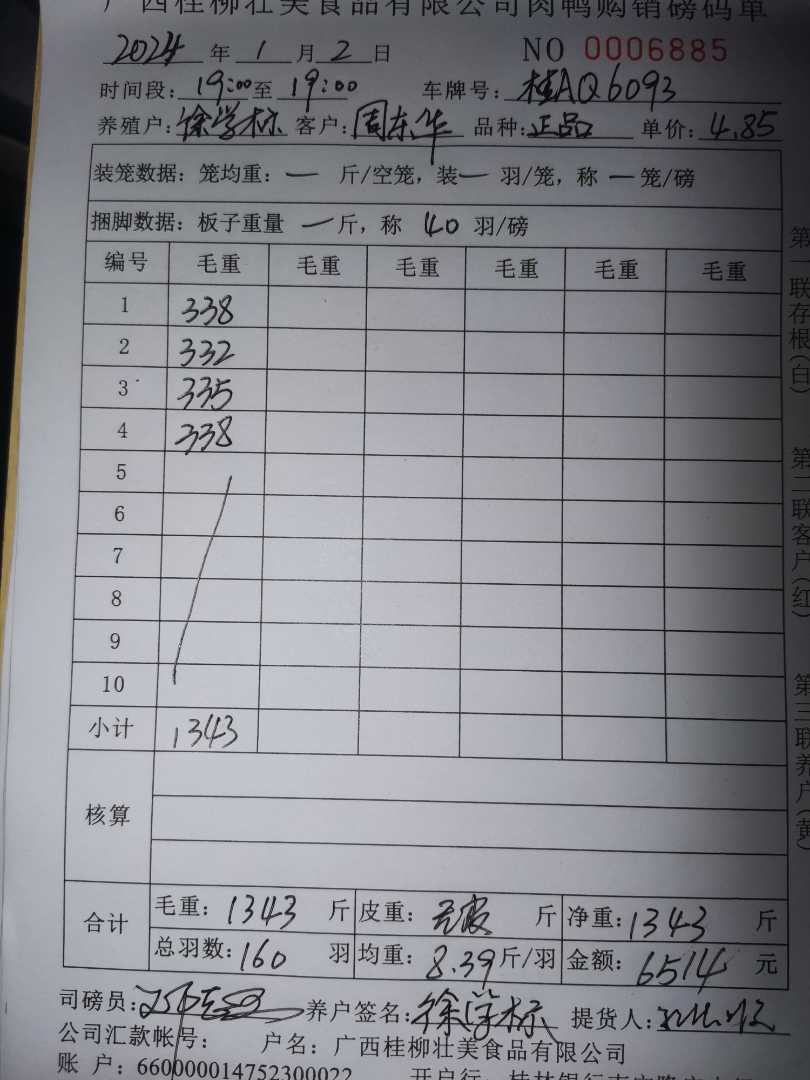 广西桂柳壮美食品有限公司肉鸭购销磅码单
2024 年 1 月 2 日 NO 0006885
时间段: 19:00 至 19:00 车牌号: 桂AQ6093
养殖户: 徐学标 客户: 周东华 品种: 正品 单价: 4.85
装笼数据: 笼均重: 一 斤/空笼, 装 一 羽/笼, 称 一 笼/磅
捆脚数据: 板子重量 一 斤, 称 40 羽/磅
编号 毛重 毛重 毛重 毛重 毛重 毛重
1 338
2 332
3 335
4 338
5
6
7
8
9
10
小计 1343
核算
合计 毛重: 1343 斤 皮重: 斤 净重: 1343 斤
总羽数: 160 羽 均重: 8.39 斤/羽 金额: 6514 元
司磅员: 养户签名: 徐学标 提货人:
公司汇款帐号: 户名: 广西桂柳壮美食品有限公司
账 户: 660000014752300022 开户行: 桂林银行南宁
第一联存根(白)
第二联客户(红)
第三联养户(黄)